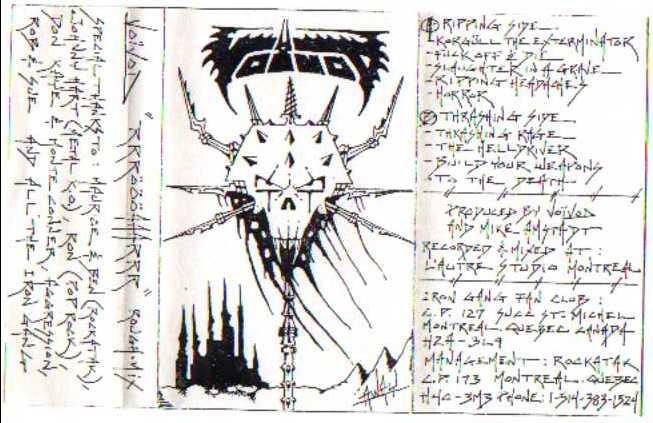 SPECIAL THANKS TO: MAURICE & BEN (ROCKATAK),
JOHNNY HART (METAL K.O), RON (TOP ROCK),
DON KAYE & MONTE CONNER, AGGRESSION,
ROB & SUE AND ALL THE IRON GANG
VOÏVOD "RRRÖÖÖAAARRR" ROUGH MIX
VOIVOD
AWAY
① RIPPING SIDE
-KORGÜLL THE EXTERMINATOR
-FUCK OFF & DIE
-SLAUGHTER IN A GRAVE
-RIPPING HEADACHES
-HORROR
② THRASHING SIDE
-THRASHING RAGE
-THE HELLDRIVER
-BUILD YOUR WEAPONS
-TO THE DEATH
PRODUCED BY VOÏVOD
AND MIKE AMSTADT
RECORDED & MIXED AT:
L'AUTRE STUDIO MONTREAL
IRON GANG FAN CLUB:
C.P. 127 SUCC ST: MICHEL
MONTREAL QUEBEC CANADA
H2A-3L9
MANAGEMENT: ROCKATAK
C.P. 173 MONTREAL. QUEBEC
H4C-3M3 PHONE: 1-514-383-1524